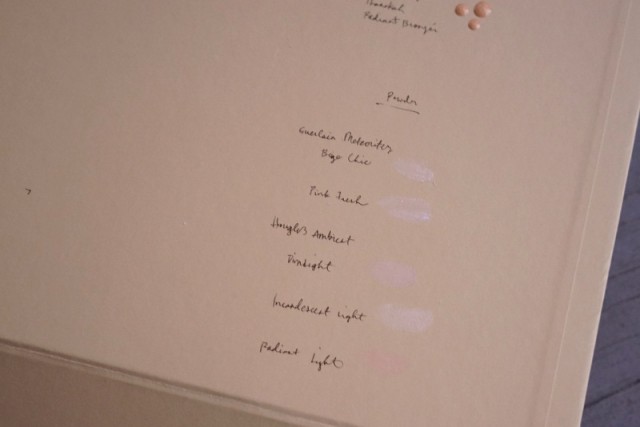 Radiant Bronzer
Powder
Guerlain Meteorites
Beige Chic
Pink Fresh
Hourglass Ambient
Dim Light
Incandescent Light
Radiant Light